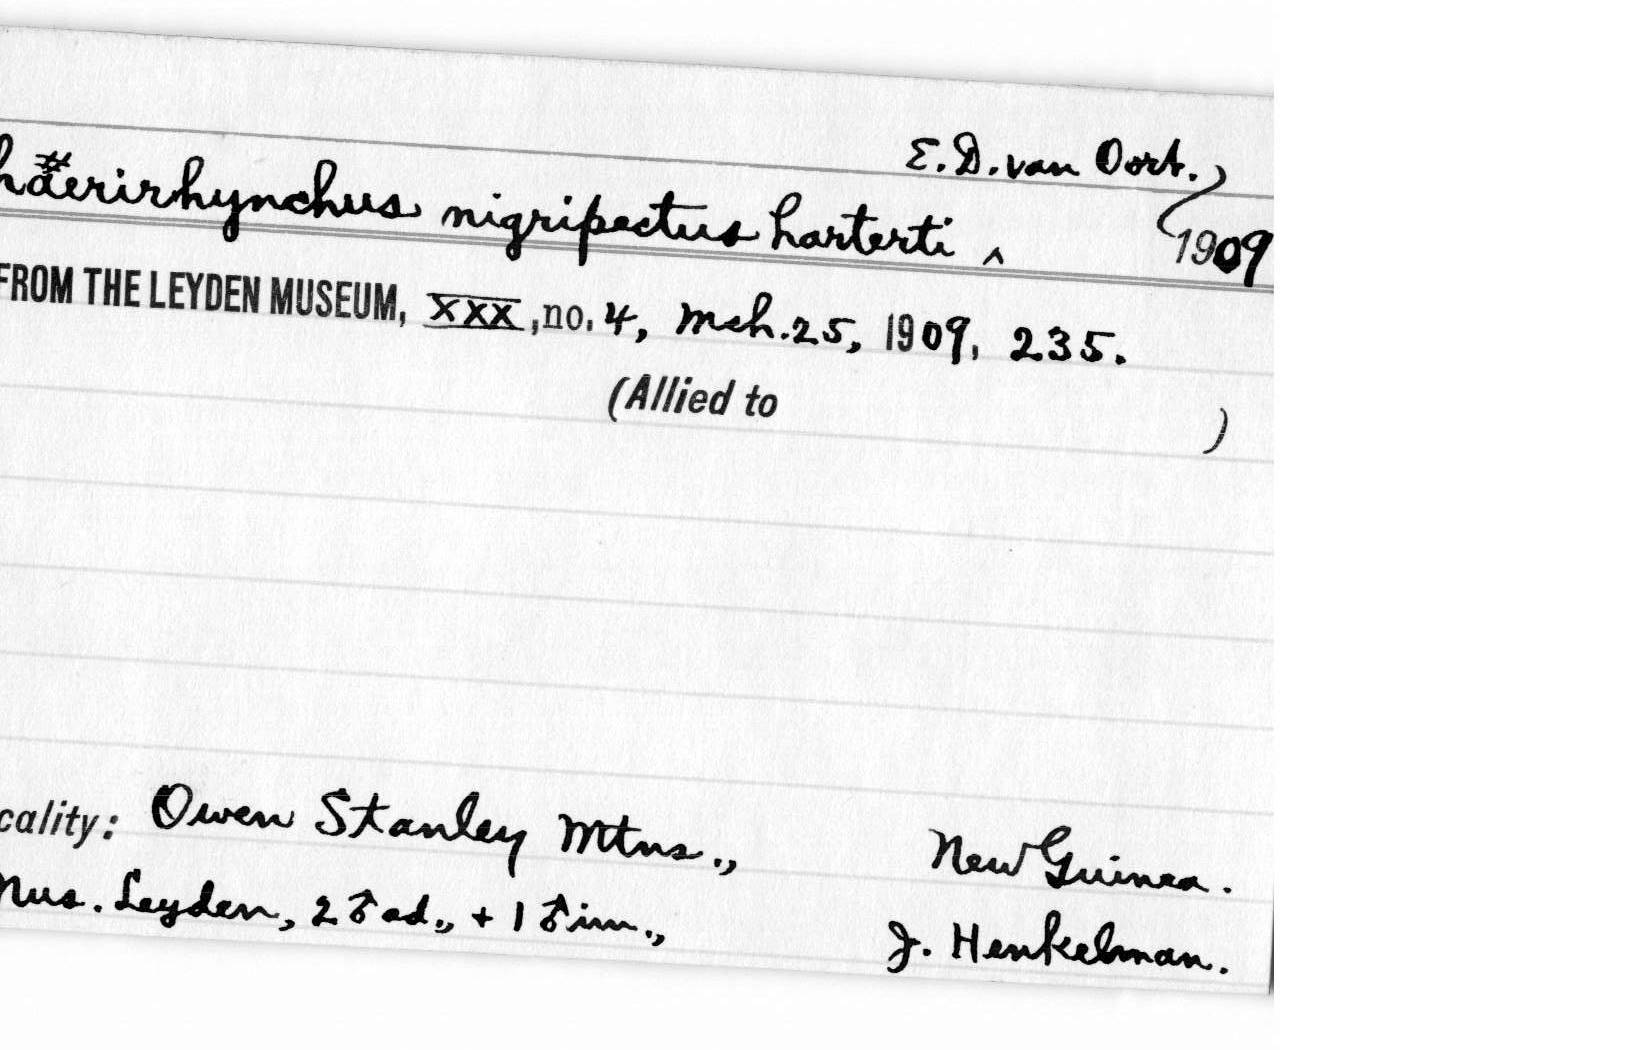 E. D. van Oort.,
haerirhynchus nigripectus harterti ^ 1909
FROM THE LEYDEN MUSEUM, XXX, no. 4, Mch. 25, 1909, 235.
(Allied to )
cality: Owen Stanley Mtns., New Guinea.
Mus. Leyden, 2 ♂ ad., + 1 ♂ im., J. Henkelman.